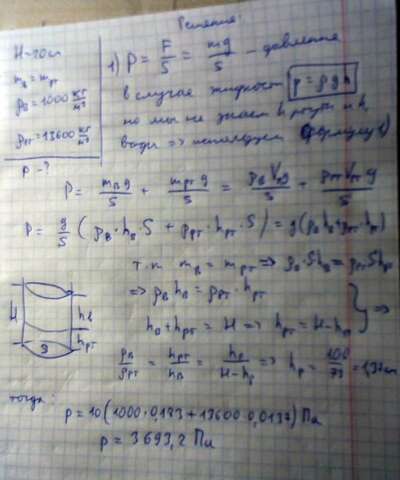 Решение:
H=20см
m_в = m_рт
ρ_в = 1000 кг/м³
ρ_рт = 13600 кг/м³
P - ?
1) P = F/S = mg/S - давление
в случае жидкост p = ρgh
но мы не знаем h ртути и h
воды => используем формулу 1)
P = m_в g/S + m_рт g/S = ρ_в V_в g/S + ρ_рт V_рт g/S
P = g/S (ρ_в · h_в · S + ρ_рт · h_рт · S) = g(ρ_в h_в + ρ_рт · h_рт)
т.к m_в = m_рт => ρ_в · S h_в = ρ_рт S h_рт
=> ρ_в h_в = ρ_рт · h_рт
h_в + h_рт = H => h_рт = H - h_в } =>
H h_в
h_рт
S
ρ_в/ρ_рт = h_рт/h_в = h_р/(H - h_р) => h_р = 100/73 = 1,37см
тогда:
p = 10(1000·0,183 + 13600·0,0137) Па
p = 3693,2 Па